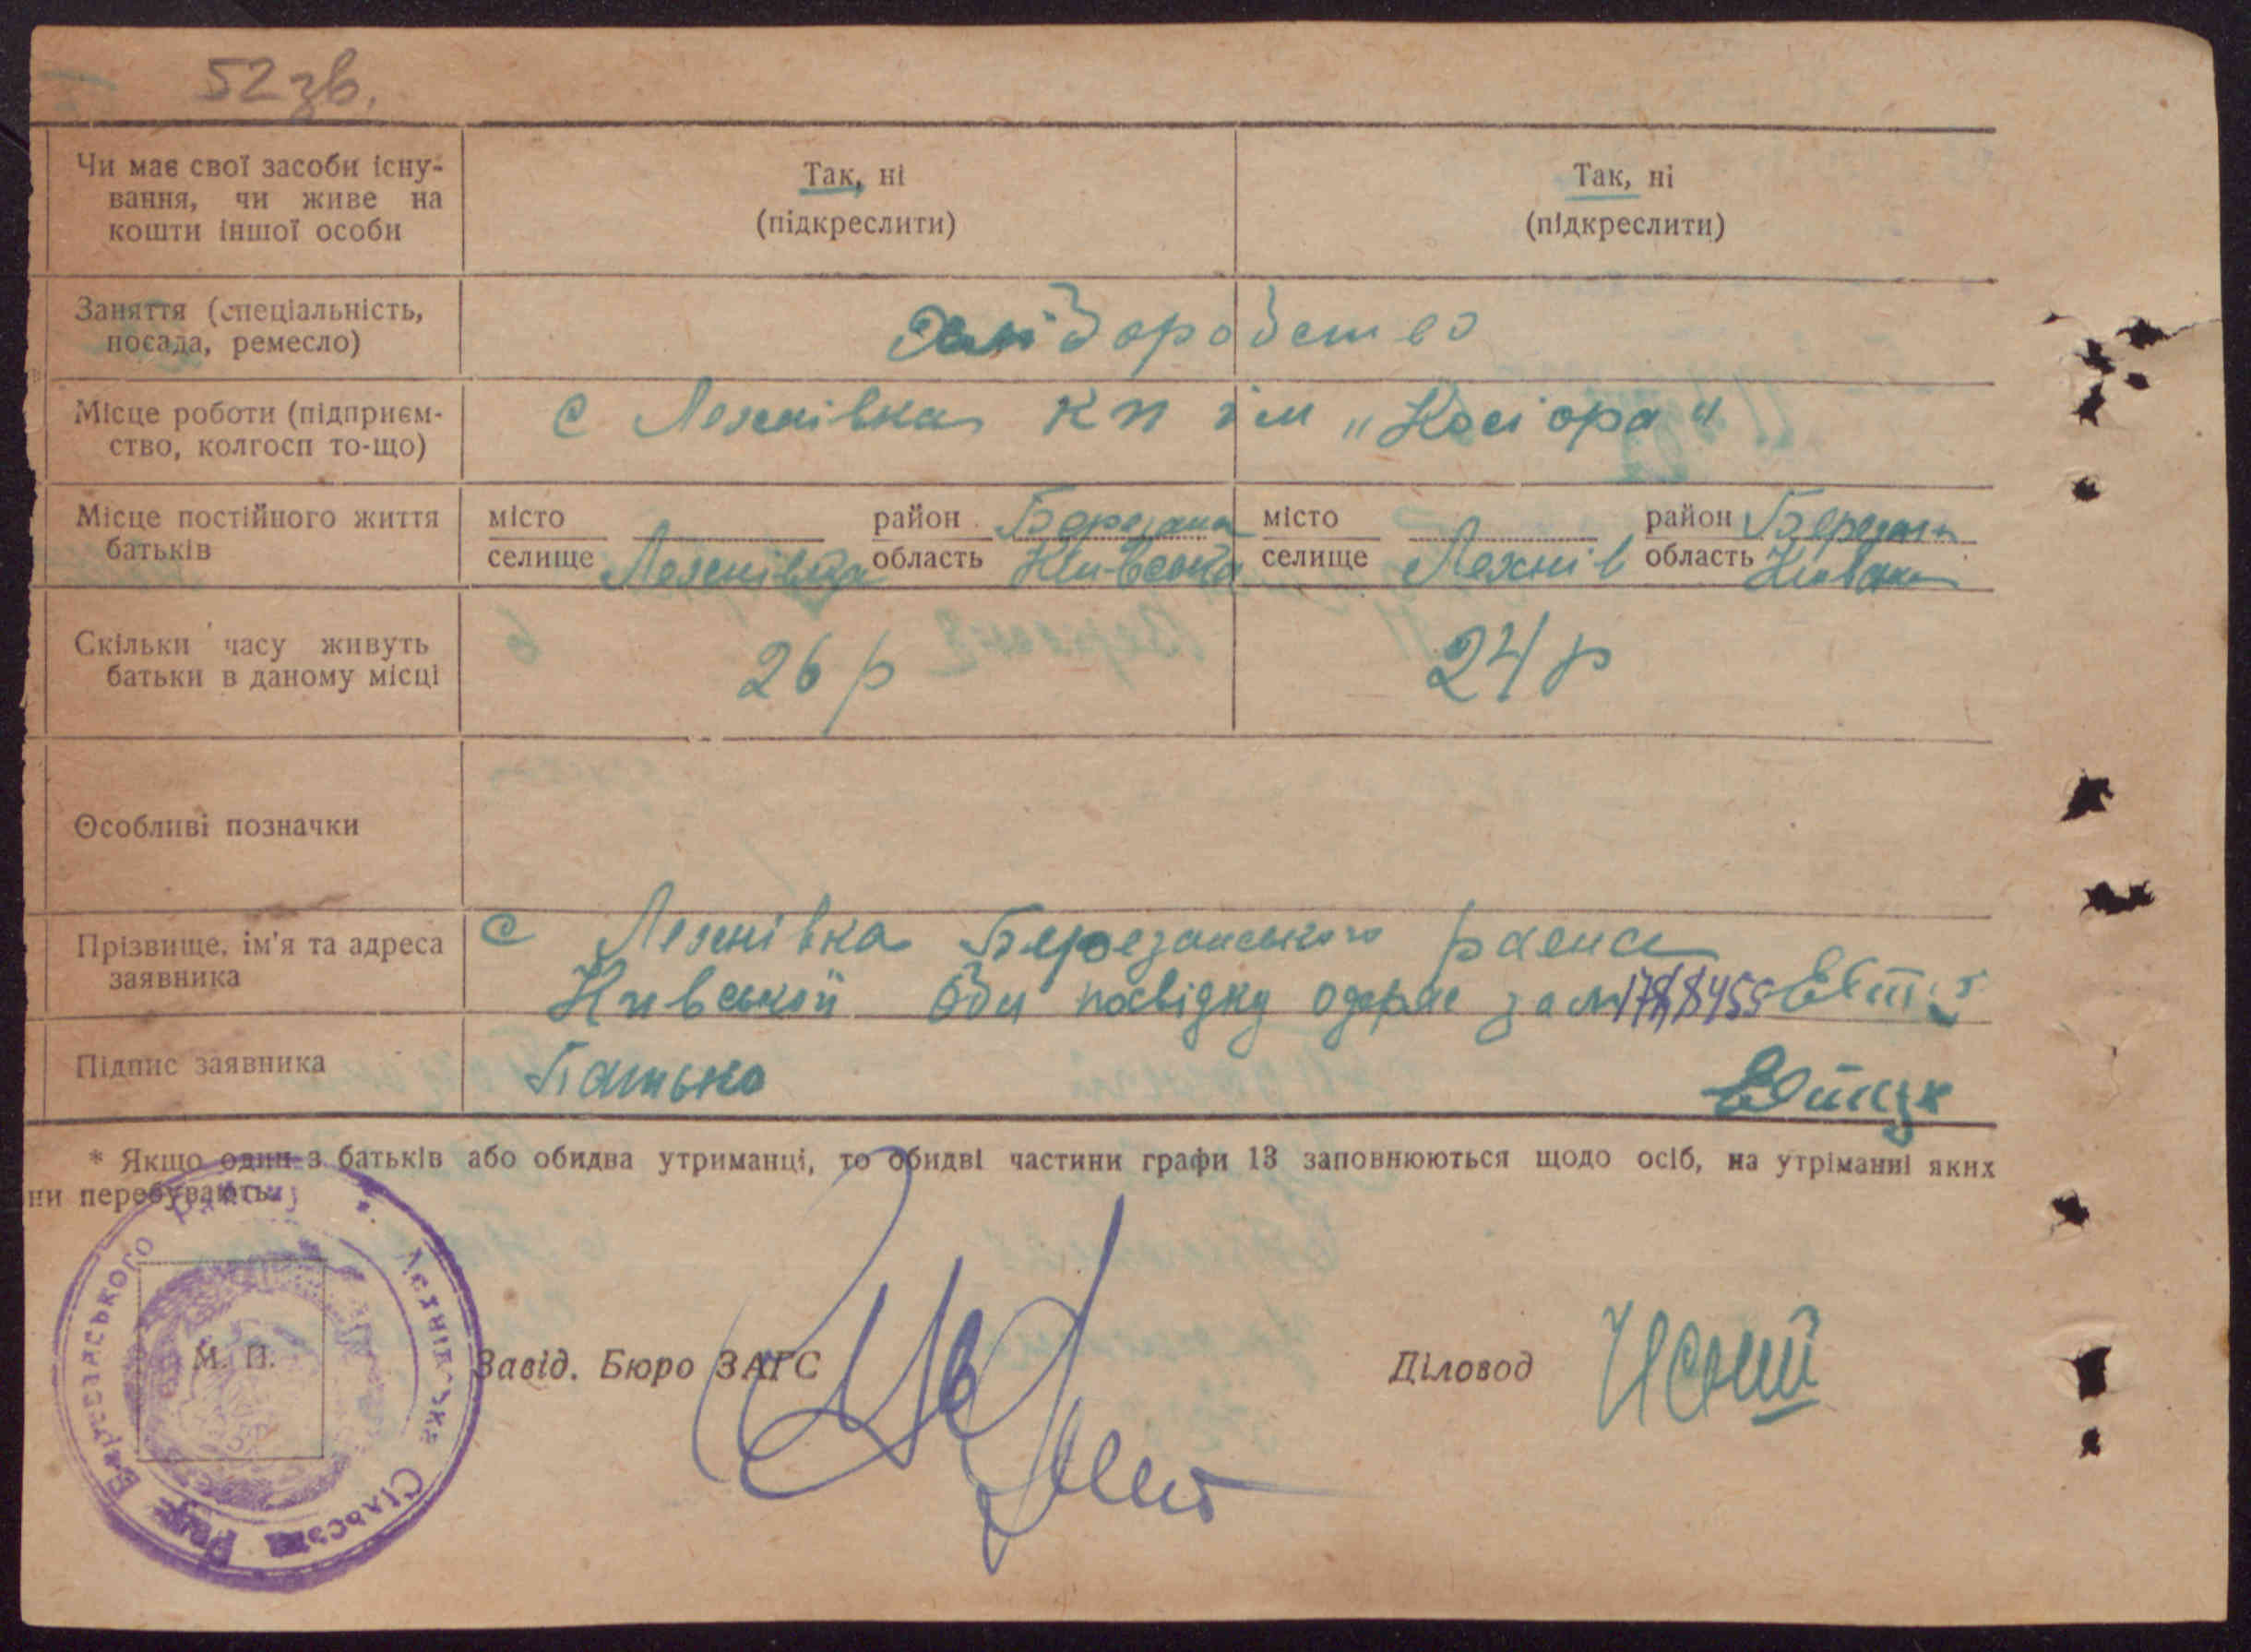 52 зв.
Чи має свої засоби існу-
вання, чи живе на
кошти іншої особи
Так, ні
(підкреслити)
Так, ні
(підкреслити)
Заняття (спеціальність,
посада, ремесло)
Місце роботи (підприєм-
ство, колгосп то-що)
с Лехнівка кп ім „Косіора"
Місце постійного життя
батьків
місто
селище Лехнівка
район Березань
область Київська
місто
селище Лехнів
район Березань
область Київська
Скільки часу живуть
батьки в даному місці
26 р
24 р
Особливі позначки
Прізвище, ім'я та адреса
заявника
с Лехнівка Березанського раена
Київської Обл посвідку одержав за №
Підпис заявника
Батько
* Якщо один з батьків або обидва утриманці, то обидві частини графи 13 заповнюються щодо осіб, на утріманні яких
ни перебувають.
Лехнівська Сільська Рада Березанського Району
М. П.
Завід. Бюро ЗАГС
Діловод